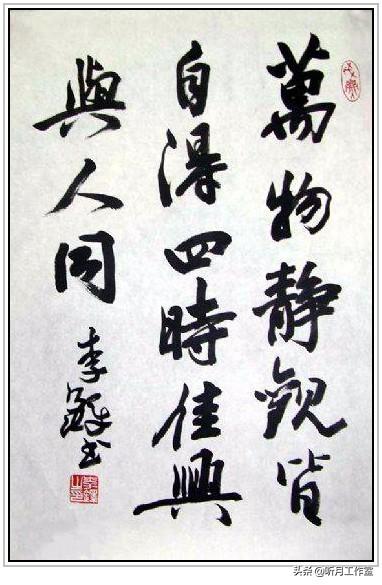 萬物静觀皆
自得四時佳興
與人同
李鐸书
头条 @听月工作室